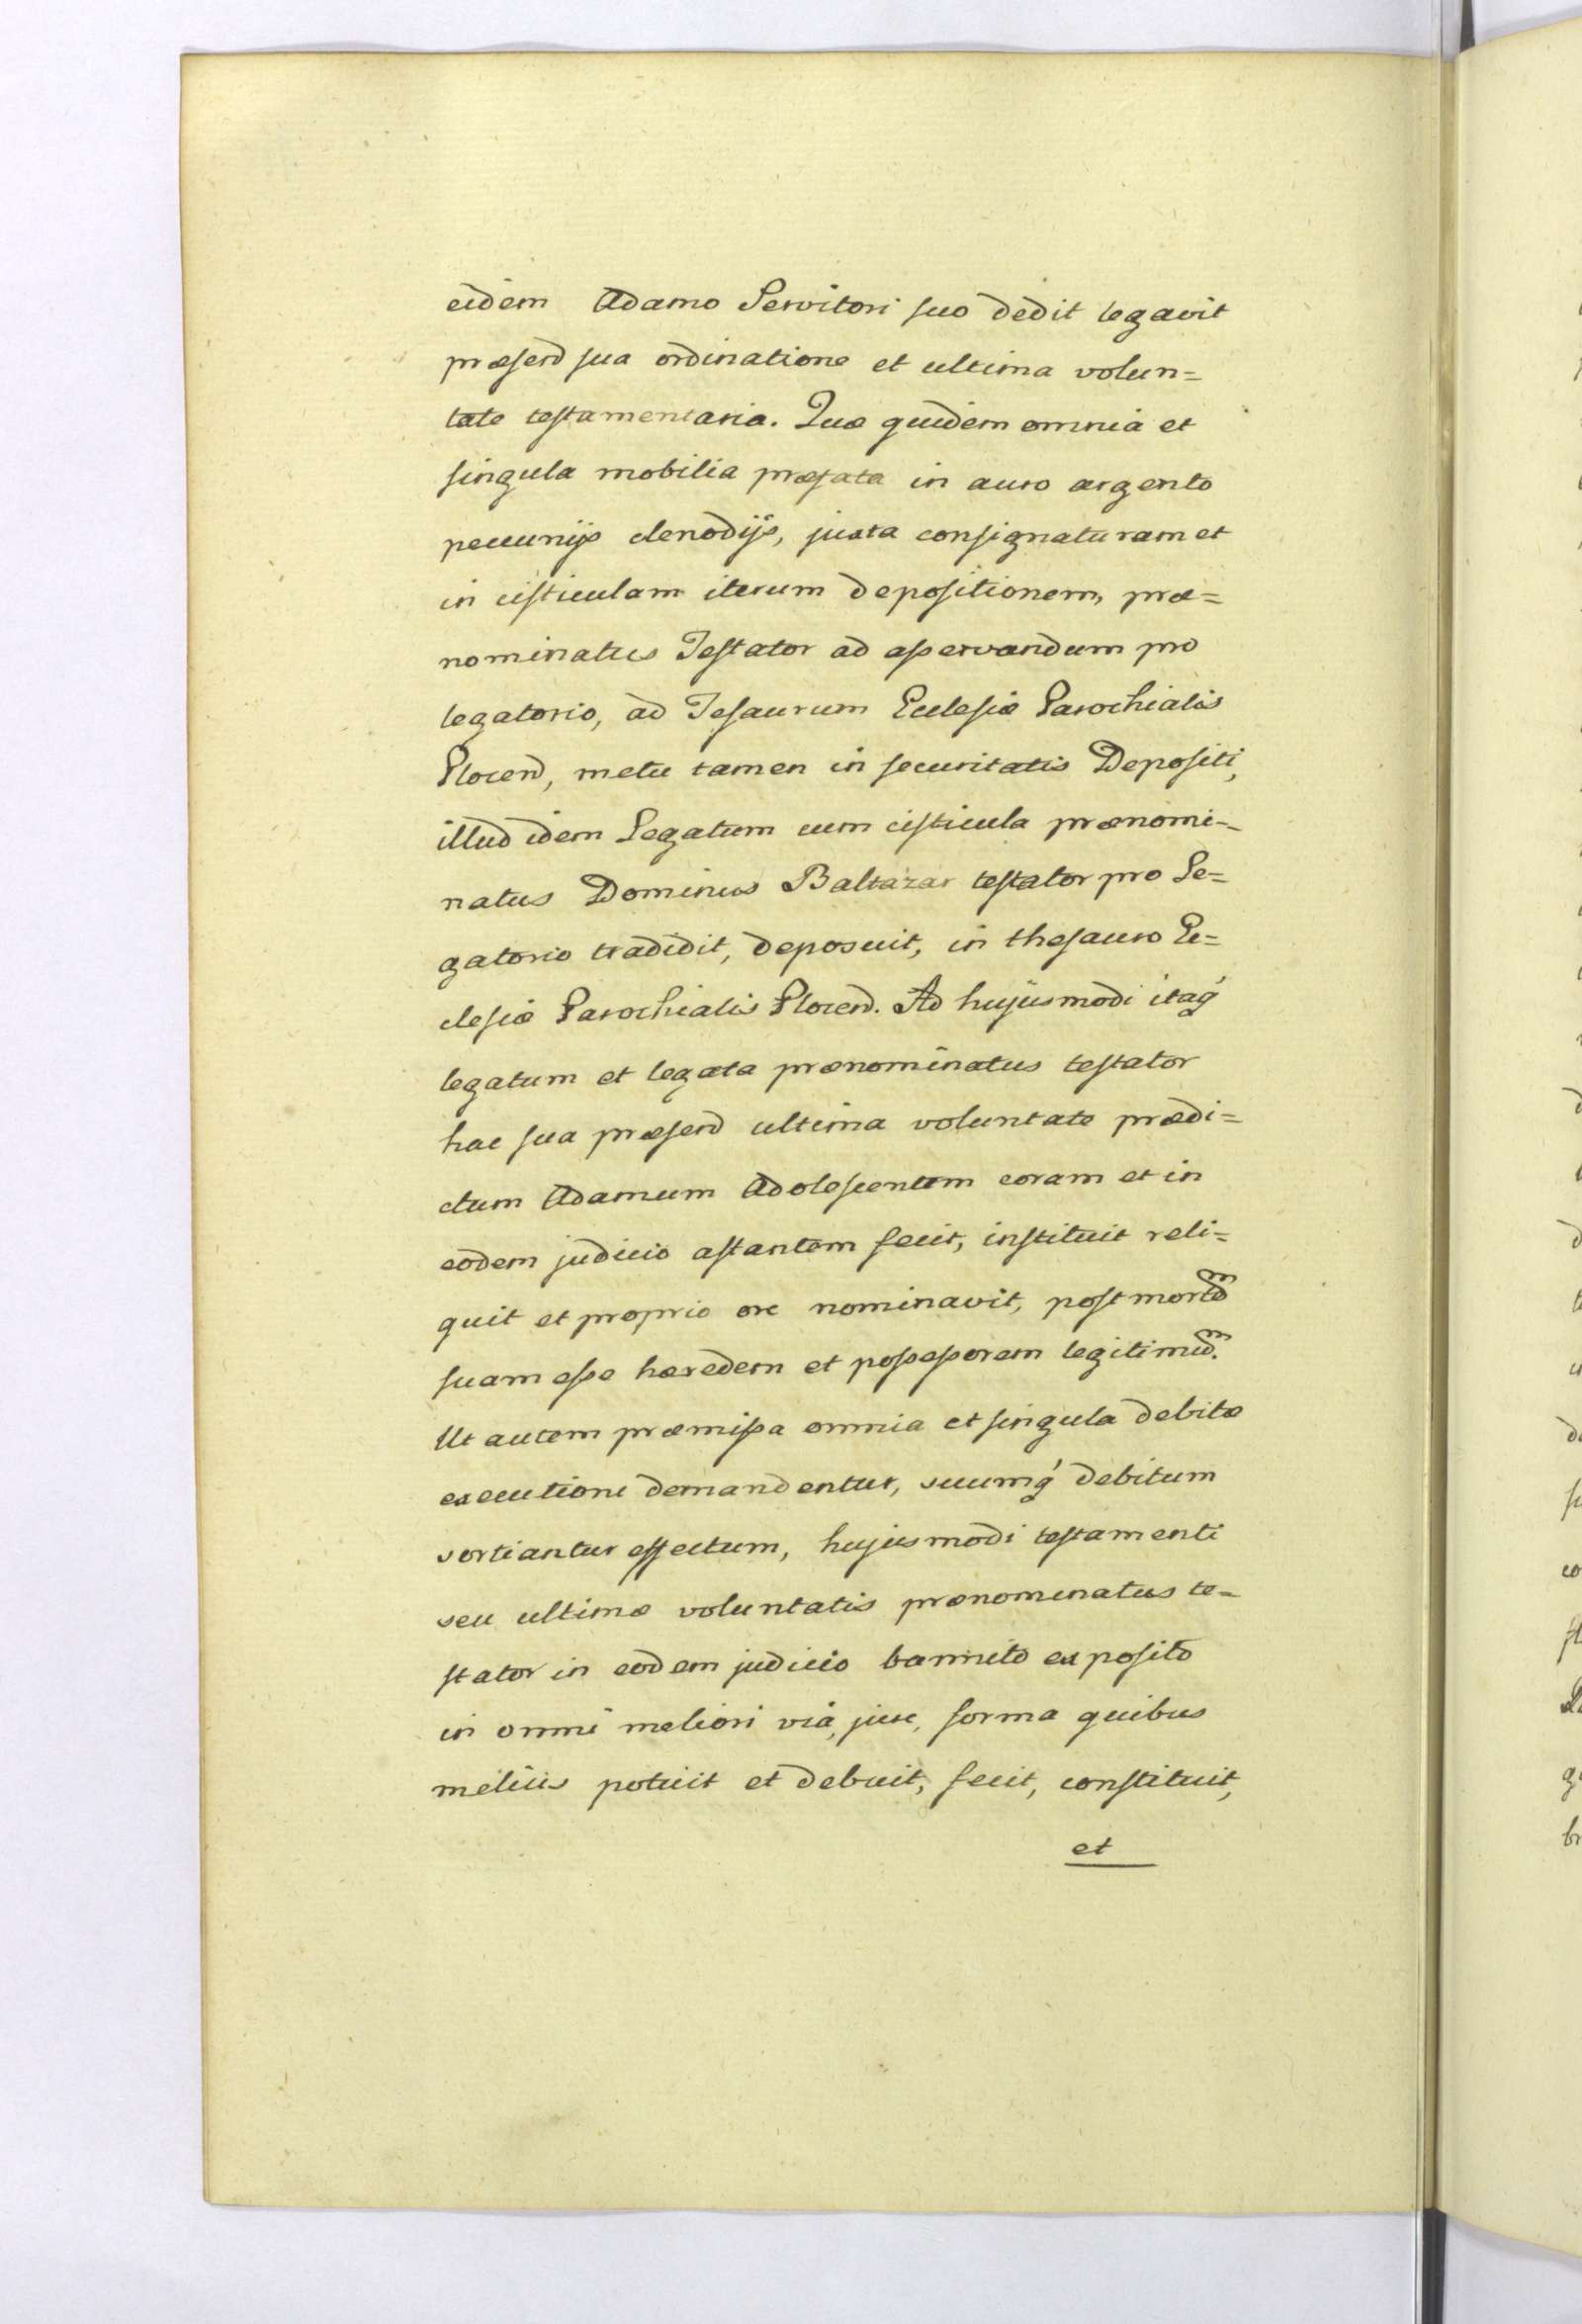 eidem Adamo Servitori suo dedit legavit
præsend sua ordinatione et ultima volun=
tate testamentaria. Quæ quidem omnia et
singula mobilia præfata in auro argento
pecunijs clenodijs, juxta consignaturam et
in cisticulam iterum depositionem, præ=
nominatus Testator ad asservandum pro
legatorio, ad Tesaurum Ecclesiæ Parochialis
Plocend, metu tamen in securitatis Depositi,
illud idem Legatum cum cisticula prænomi-
natus Dominus Baltazar testator pro Le=
gatorio tradidit, deposuit, in thesauro Ec=
clesiæ Parochialis Plocend. Ad hujusmodi itaq́
legatum et legata prænominatus testator
hac sua præsend ultima voluntate prædi=
ctum Adamum Adolescentem coram et in
eodem judicio astantem fecit, instituit reli=
quit et proprio ore nominavit, post mortem
suam esse hæredem et possessorem legitimum.
Ut autem præmissa omnia et singula debitæ
executioni demandentur, suumq́ debitum
sortiantur effectum, hujusmodi testamenti
seu ultimæ voluntatis prænominatus te-
stator in eodem judicio bannito exposito
in omni meliori via, jure, forma quibus
meliûs potuit et debuit, fecit, constituit,
et